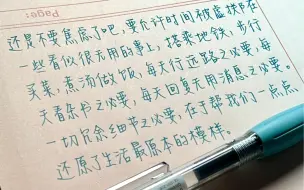 Page:
还是不要焦虑了吧，要允许时间被虚掷在
一些看似很无用的事上，搭乘地铁，步行
买菜，煮汤做饭，每天行远路之必要，每
天看杂书之必要，每天回复无用消息之必要。
一切冗余细节之必要，在于帮我们一点点
还原了生活最原本的模样。